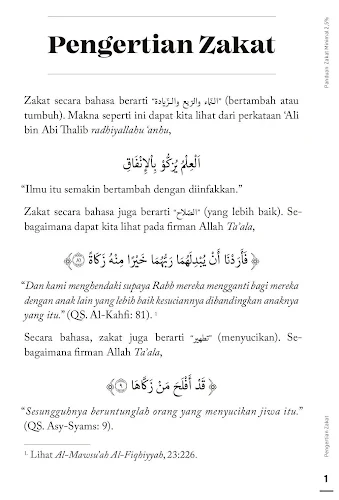 Pengertian Zakat
Zakat secara bahasa berarti "النَّمَاء وَالرَّيع وَالـزِّيَادة" (bertambah atau
tumbuh). Makna seperti ini dapat kita lihat dari perkataan ‘Ali
bin Abi Thalib radhiyallahu ‘anhu,
اَلْعِلْمُ يُزَكُّوْ بِالْإِنْفَاقِ
“Ilmu itu semakin bertambah dengan diinfakkan.”
Zakat secara bahasa juga berarti "الصَّلَاح" (yang lebih baik). Se-
bagaimana dapat kita lihat pada firman Allah Ta’ala,
﴿ فَأَرَدْنَا أَنْ يُبْدِلَهُمَا رَبُّهُمَا خَيْرًا مِنْهُ زَكَاةً ۝٨١ ﴾
“Dan kami menghendaki supaya Rabb mereka mengganti bagi mereka
dengan anak lain yang lebih baik kesuciannya dibandingkan anaknya
yang itu.” (QS. Al-Kahfi: 81). ¹
Secara bahasa, zakat juga berarti "تطهير" (menyucikan). Se-
bagaimana firman Allah Ta’ala,
﴿ قَدْ أَفْلَحَ مَنْ زَكَّاهَا ۝٩ ﴾
“Sesungguhnya beruntunglah orang yang menyucikan jiwa itu.”
(QS. Asy-Syams: 9).
1. Lihat Al-Mawsu’ah Al-Fiqhiyyah, 23:226.
Panduan Zakat Minimal 2,5%
Pengertian Zakat
1